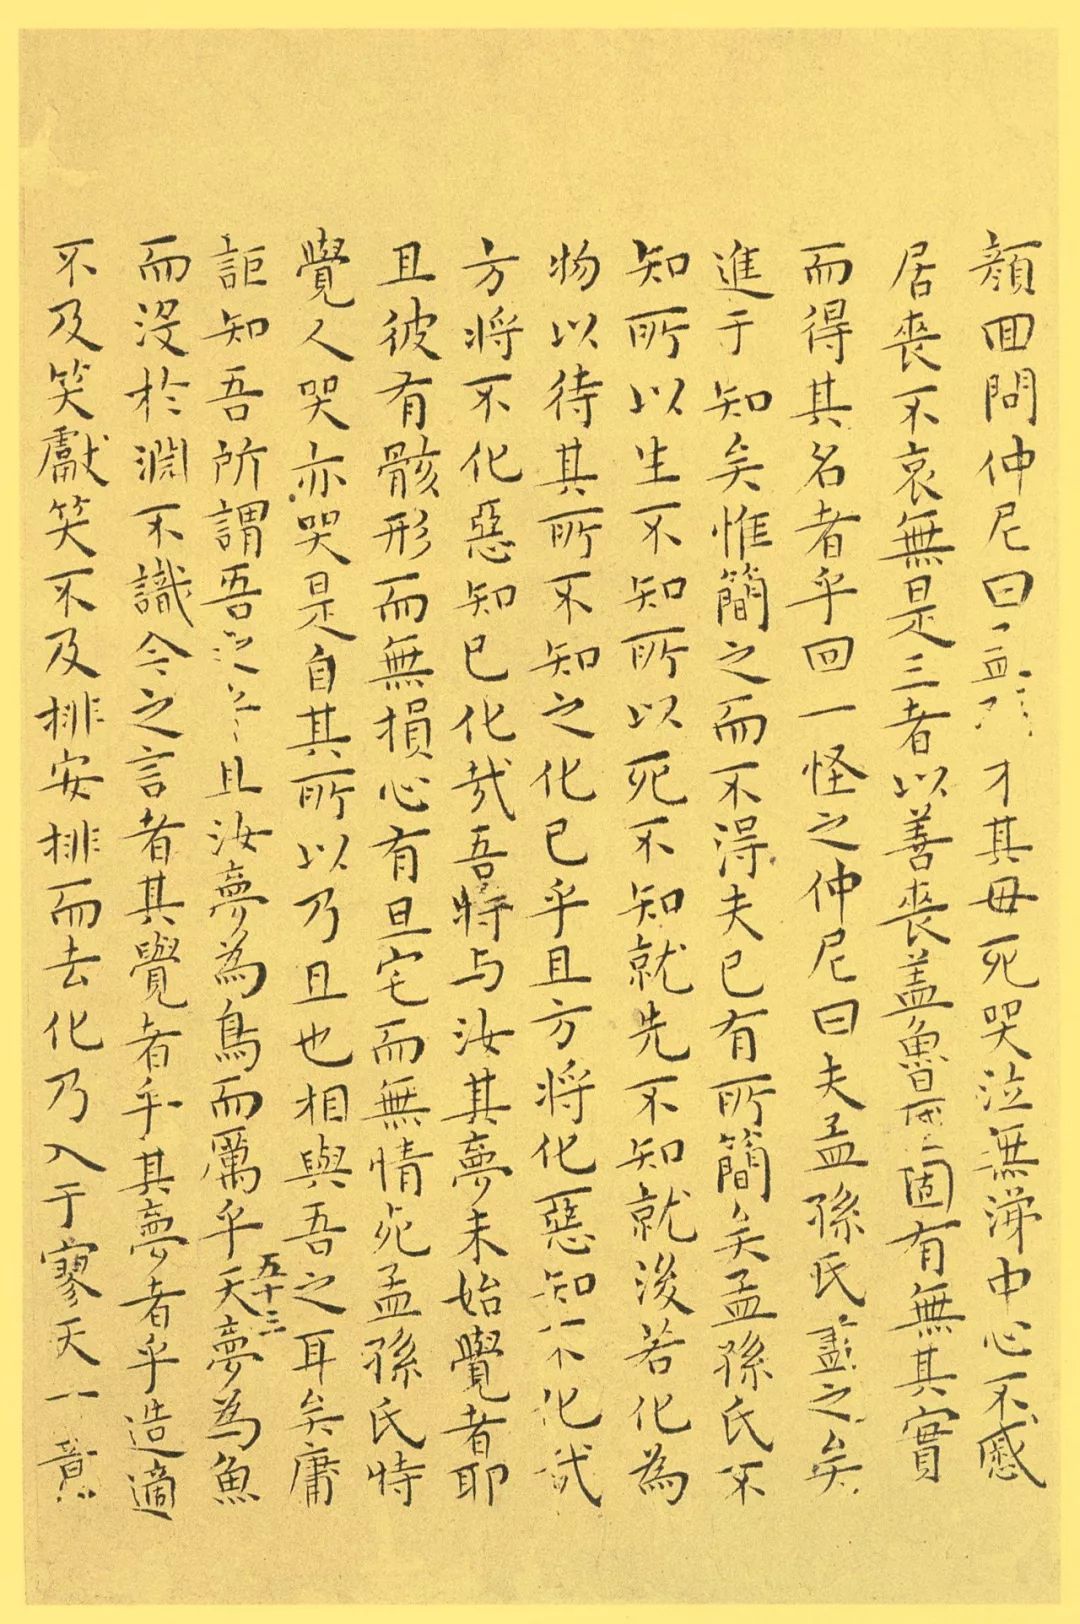 顔囬問仲尼曰孟才其母死哭泣無涕中心不慼
居喪不哀無是三者以善喪盖魯國固有無其實
而得其名者乎回一怪之仲尼曰夫孟孫氏盡之矣
進于知矣惟簡之而不得夫已有所簡矣孟孫氏不
知所以生不知所以死不知就先不知就後若化為
物以待其所不知之化已乎且方將化惡知不化哉
方將不化惡知已化哉吾特与汝其夢未始覺者耶
且彼有骸形而無損心有旦宅而無情死孟孫氏特
覺人哭亦哭是自其所以乃且也相與吾之耳矣庸
詎知吾所謂吾之乎且汝夢為鳥而厲乎天夢為魚
五十三
而沒於淵不識今之言者其覺者乎其夢者乎造適
不及笑獻笑不及排安排而去化乃入于寥天一